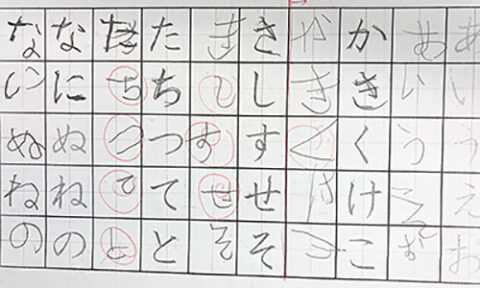 あいうえお
あいうえお
かきくけこ
かきくけこ
さしすせそ
さしすせそ
たちつてと
たちつてと
なにぬねの
なにぬねの